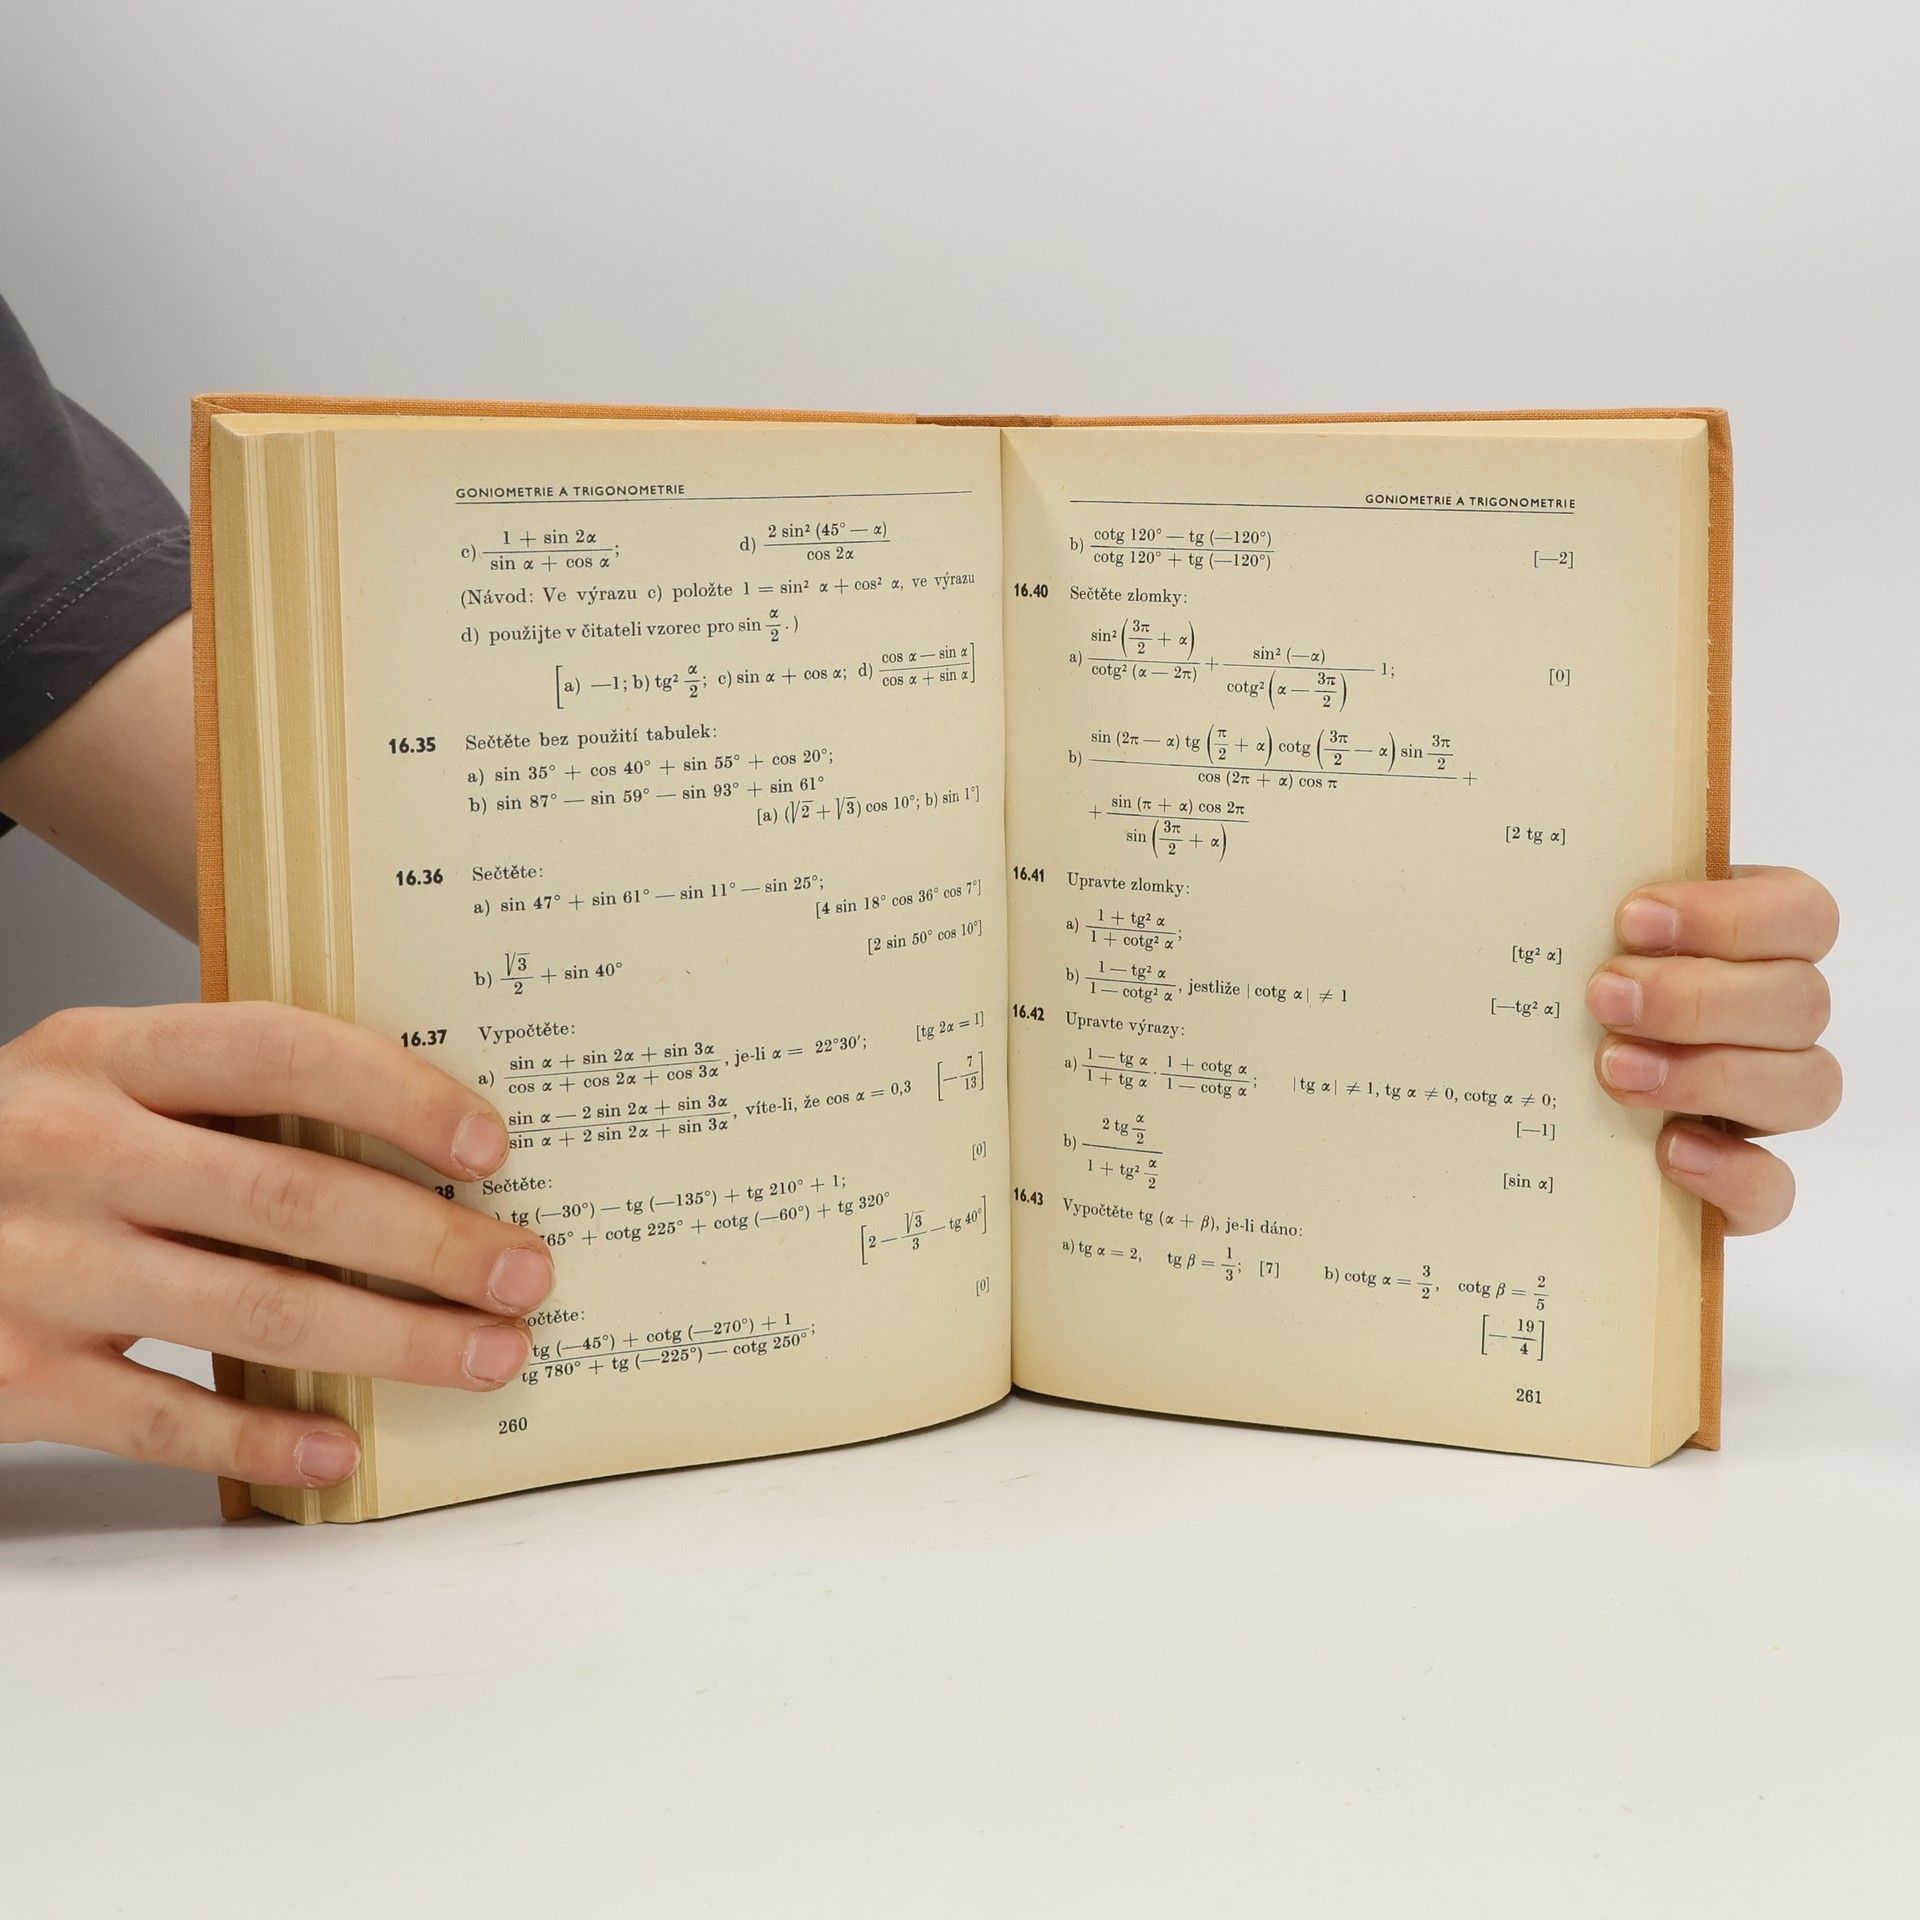 GONIOMETRIE A TRIGONOMETRIE
c) (1 + sin 2α)/(sin α + cos α); d) (2 sin² (45° — α))/(cos 2α)
(Návod: Ve výrazu c) položte 1 = sin² α + cos² α, ve výrazu
d) použijte v čitateli vzorec pro sin α/2.)
[a) —1; b) tg² α/2; c) sin α + cos α; d) (cos α — sin α)/(cos α + sin α)]
16.35 Sečtěte bez použití tabulek:
a) sin 35° + cos 40° + sin 55° + cos 20°;
b) sin 87° — sin 59° — sin 93° + sin 61°
[a) (√2 + √3) cos 10°; b) sin 1°]
16.36 Sečtěte:
a) sin 47° + sin 61° — sin 11° — sin 25°;
[4 sin 18° cos 36° cos 7°]
[2 sin 50° cos 10°]
b) √3/2 + sin 40°
16.37 Vypočtěte:
[tg 2α = 1]
a) (sin α + sin 2α + sin 3α)/(cos α + cos 2α + cos 3α), je-li α = 22°30′;
(sin α — 2 sin 2α + sin 3α)/(sin α + 2 sin 2α + sin 3α), víte-li, že cos α = 0,3 [—7/13]
[0]
38 Sečtěte:
) tg (—30°) — tg (—135°) + tg 210° + 1;
765° + cotg 225° + cotg (—60°) + tg 320°
[2 — √3/3 — tg 40°]
[0]
počtěte:
(tg (—45°) + cotg (—270°) + 1)/(tg 780° + tg (—225°) — cotg 250°);
260
GONIOMETRIE A TRIGONOMETRIE
b) (cotg 120° — tg (—120°))/(cotg 120° + tg (—120°)) [—2]
16.40 Sečtěte zlomky:
a) (sin² (3π/2 + α))/(cotg² (α — 2π)) + (sin² (—α))/(cotg² (α — 3π/2)) — 1; [0]
b) (sin (2π — α) tg (π/2 + α) cotg (3π/2 — α) sin 3π/2)/(cos (2π + α) cos π) +
+ (sin (π + α) cos 2π)/(sin (3π/2 + α)) [2 tg α]
16.41 Upravte zlomky:
a) (1 + tg² α)/(1 + cotg² α); [tg² α]
b) (1 — tg² α)/(1 — cotg² α), jestliže |cotg α| ≠ 1 [—tg² α]
16.42 Upravte výrazy:
a) (1 — tg α)/(1 + tg α) . (1 + cotg α)/(1 — cotg α); |tg α| ≠ 1, tg α ≠ 0, cotg α ≠ 0;
[—1]
b) (2 tg α/2)/(1 + tg² α/2) [sin α]
16.43 Vypočtěte tg (α + β), je-li dáno:
a) tg α = 2, tg β = 1/3; [7] b) cotg α = 3/2, cotg β = 2/5
[—19/4]
261